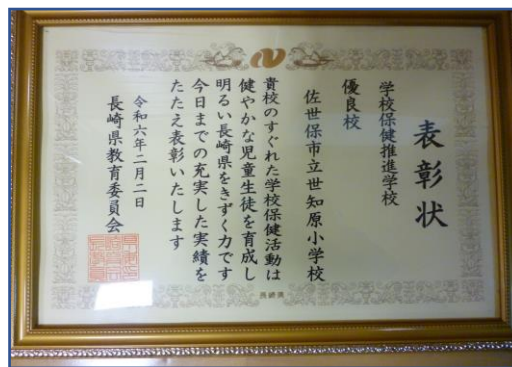 表彰状
学校保健推進学校
優良校
佐世保市立世知原小学校
貴校のすぐれた学校保健活動は
健やかな児童生徒を育成し
明るい長崎県をきずく力です
今日までの充実した実績を
たたえ表彰いたします
令和六年二月二日
長崎県教育委員会
長崎県